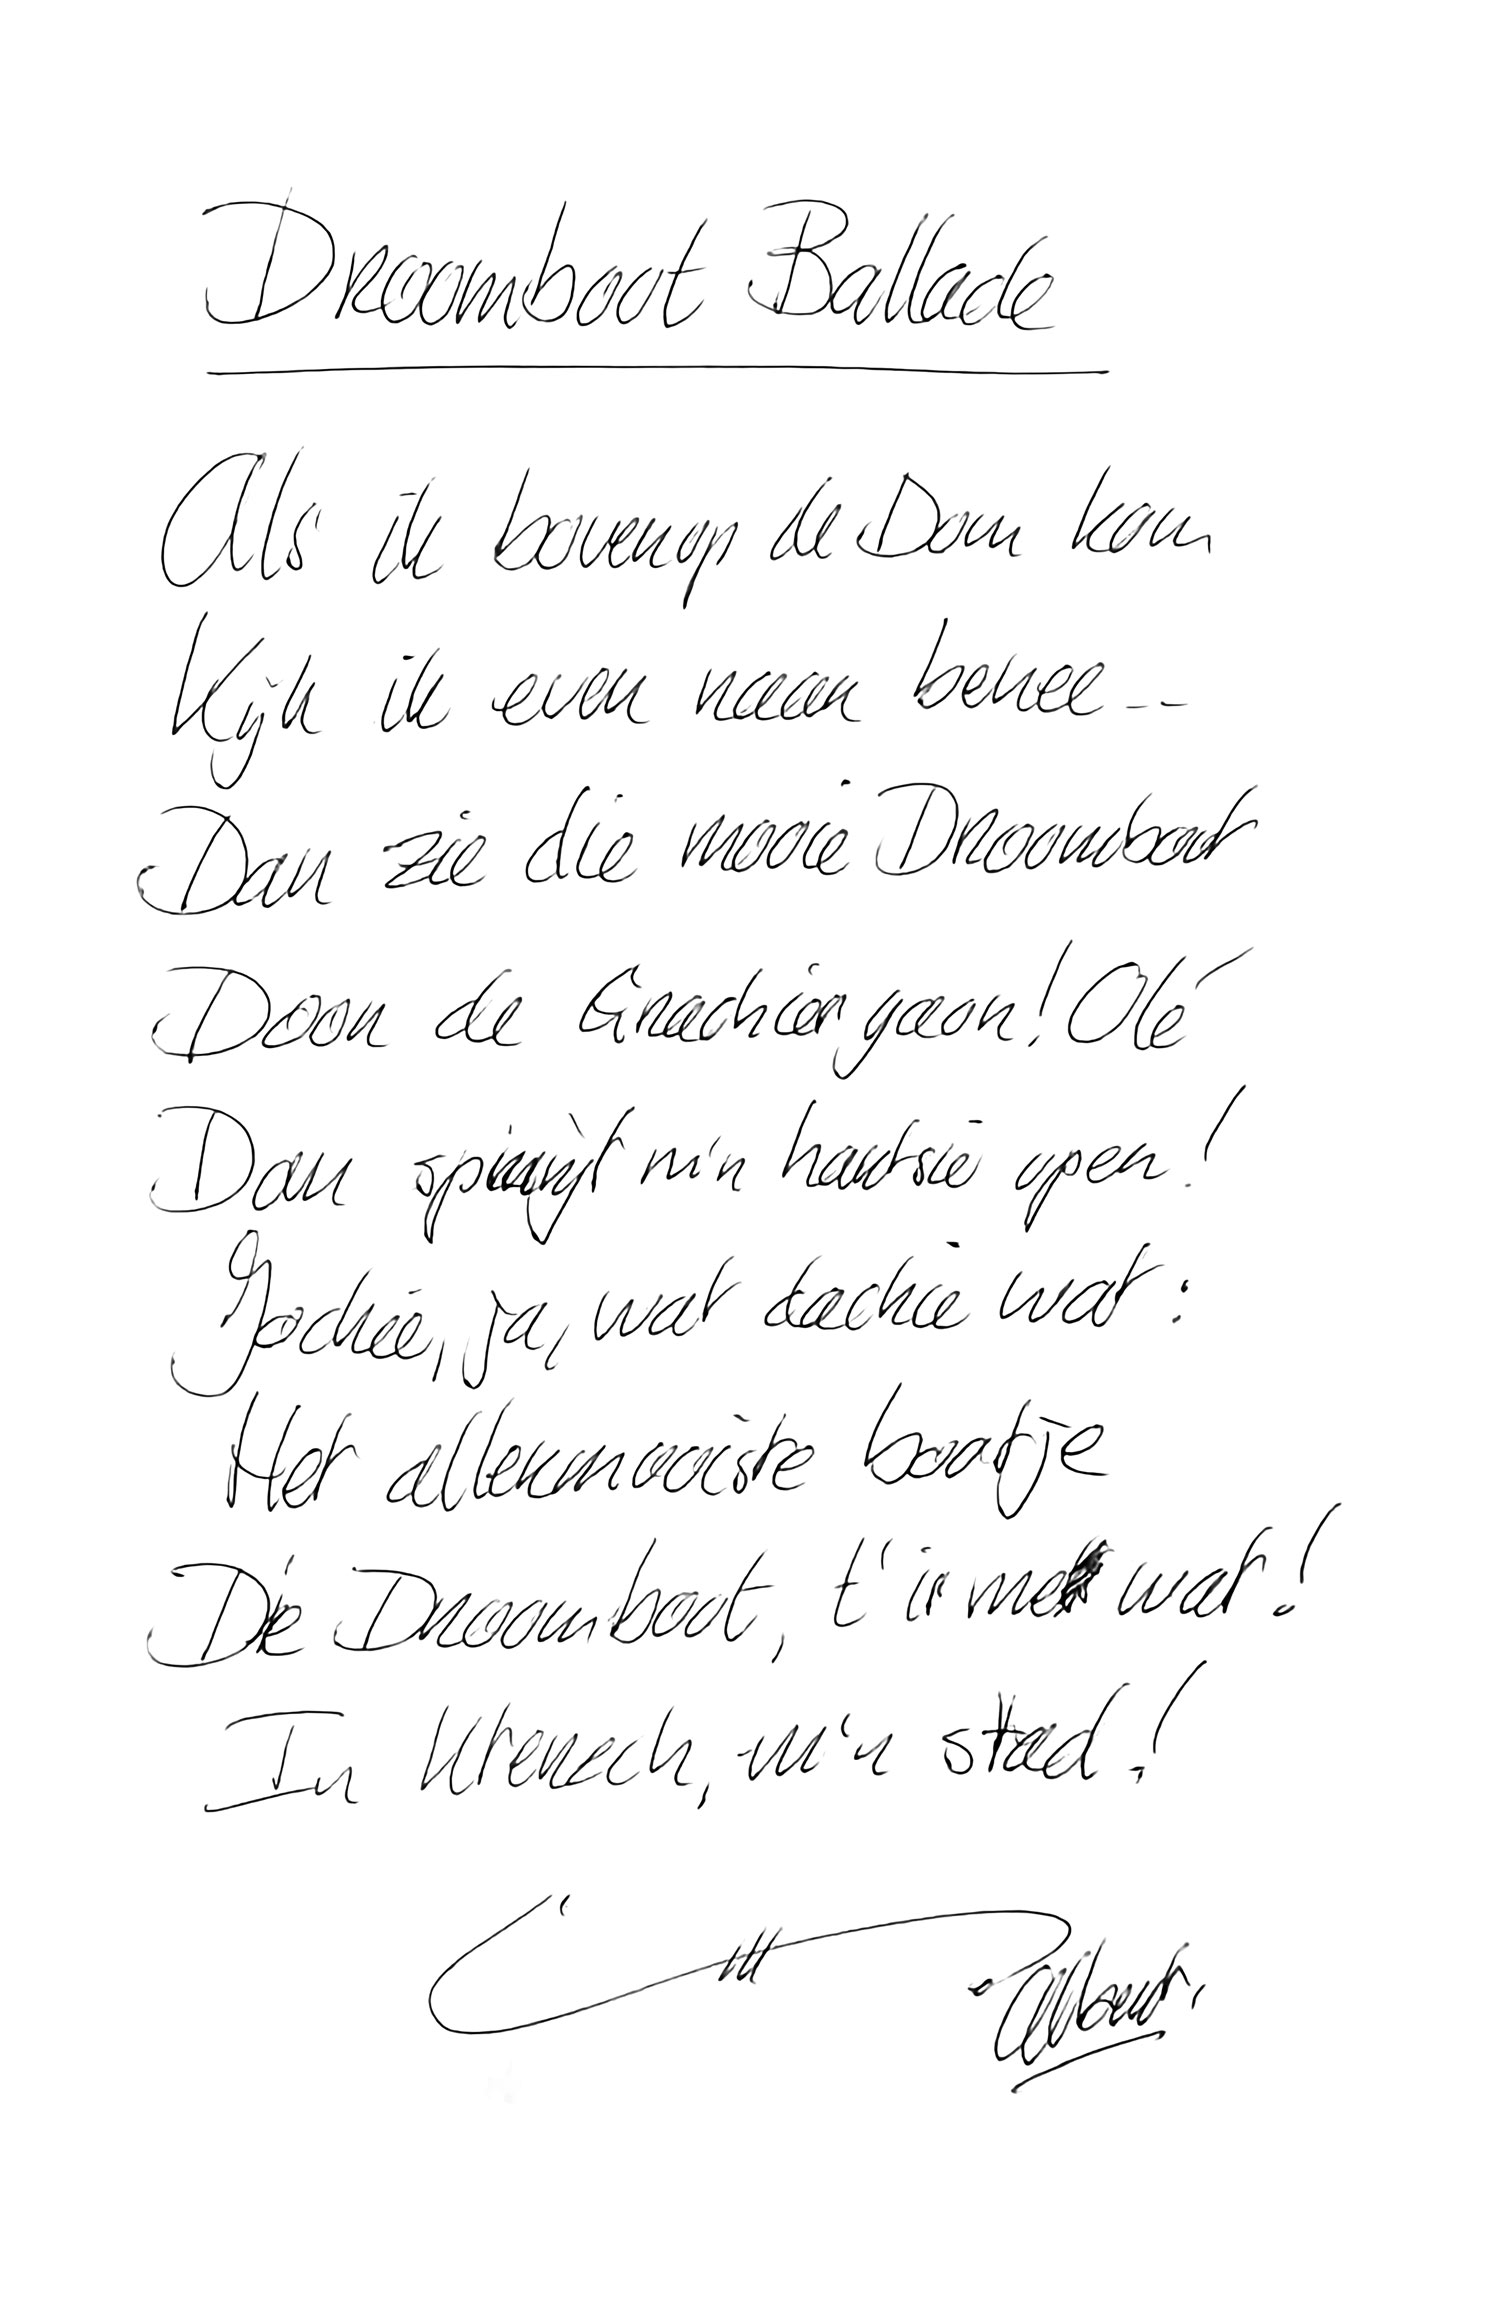 Droomboot Ballade
Als ik bovenop de Dom kom
Kijk ik even naar benee --
Dan zie die mooie Droomboot
Door de Grachier gaon! Olé
Dan springt m'n hartsie open!
Jochie, ja, wat dachie wat:
Het allermooiste bootje
De Droomboot, t' is me wat!
In Utereech, m'n stad!